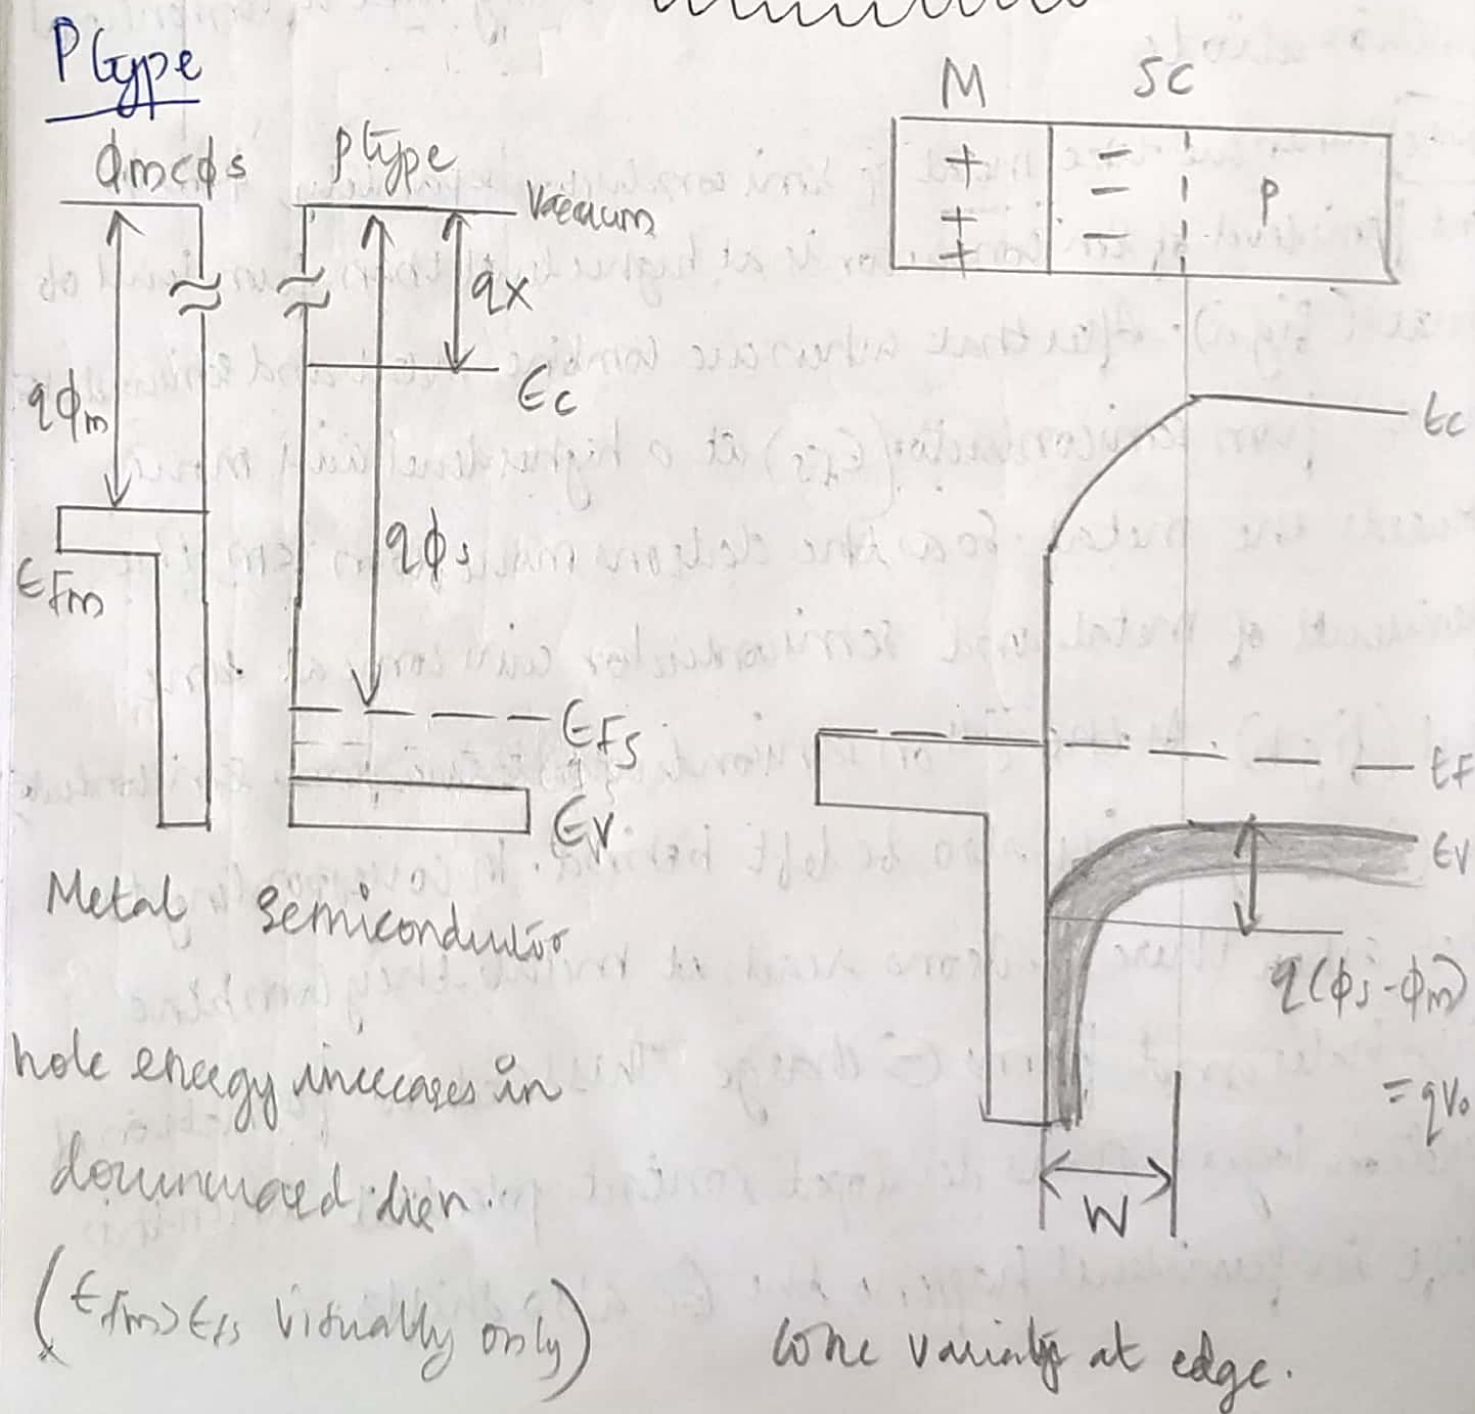 P type
ϕm<ϕs
p type
Vacuum
qϕm
qχ
Ec
qϕs
EFm
EFs
Ev
Metal
Semiconductor
hole energy increases in
downward dirn.
(EFm>EFs visually only)
M
SC
+
+
+
-
-
-
P
Ec
EF
Ev
q(ϕs-ϕm)
= qV₀
W
at edge.